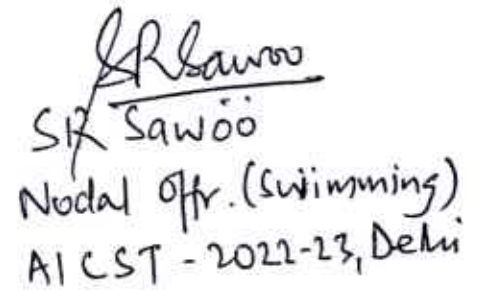 SRSawoo
SR Sawöö
Nodal Offr. (Swimming)
AICST - 2022-23, Delhi